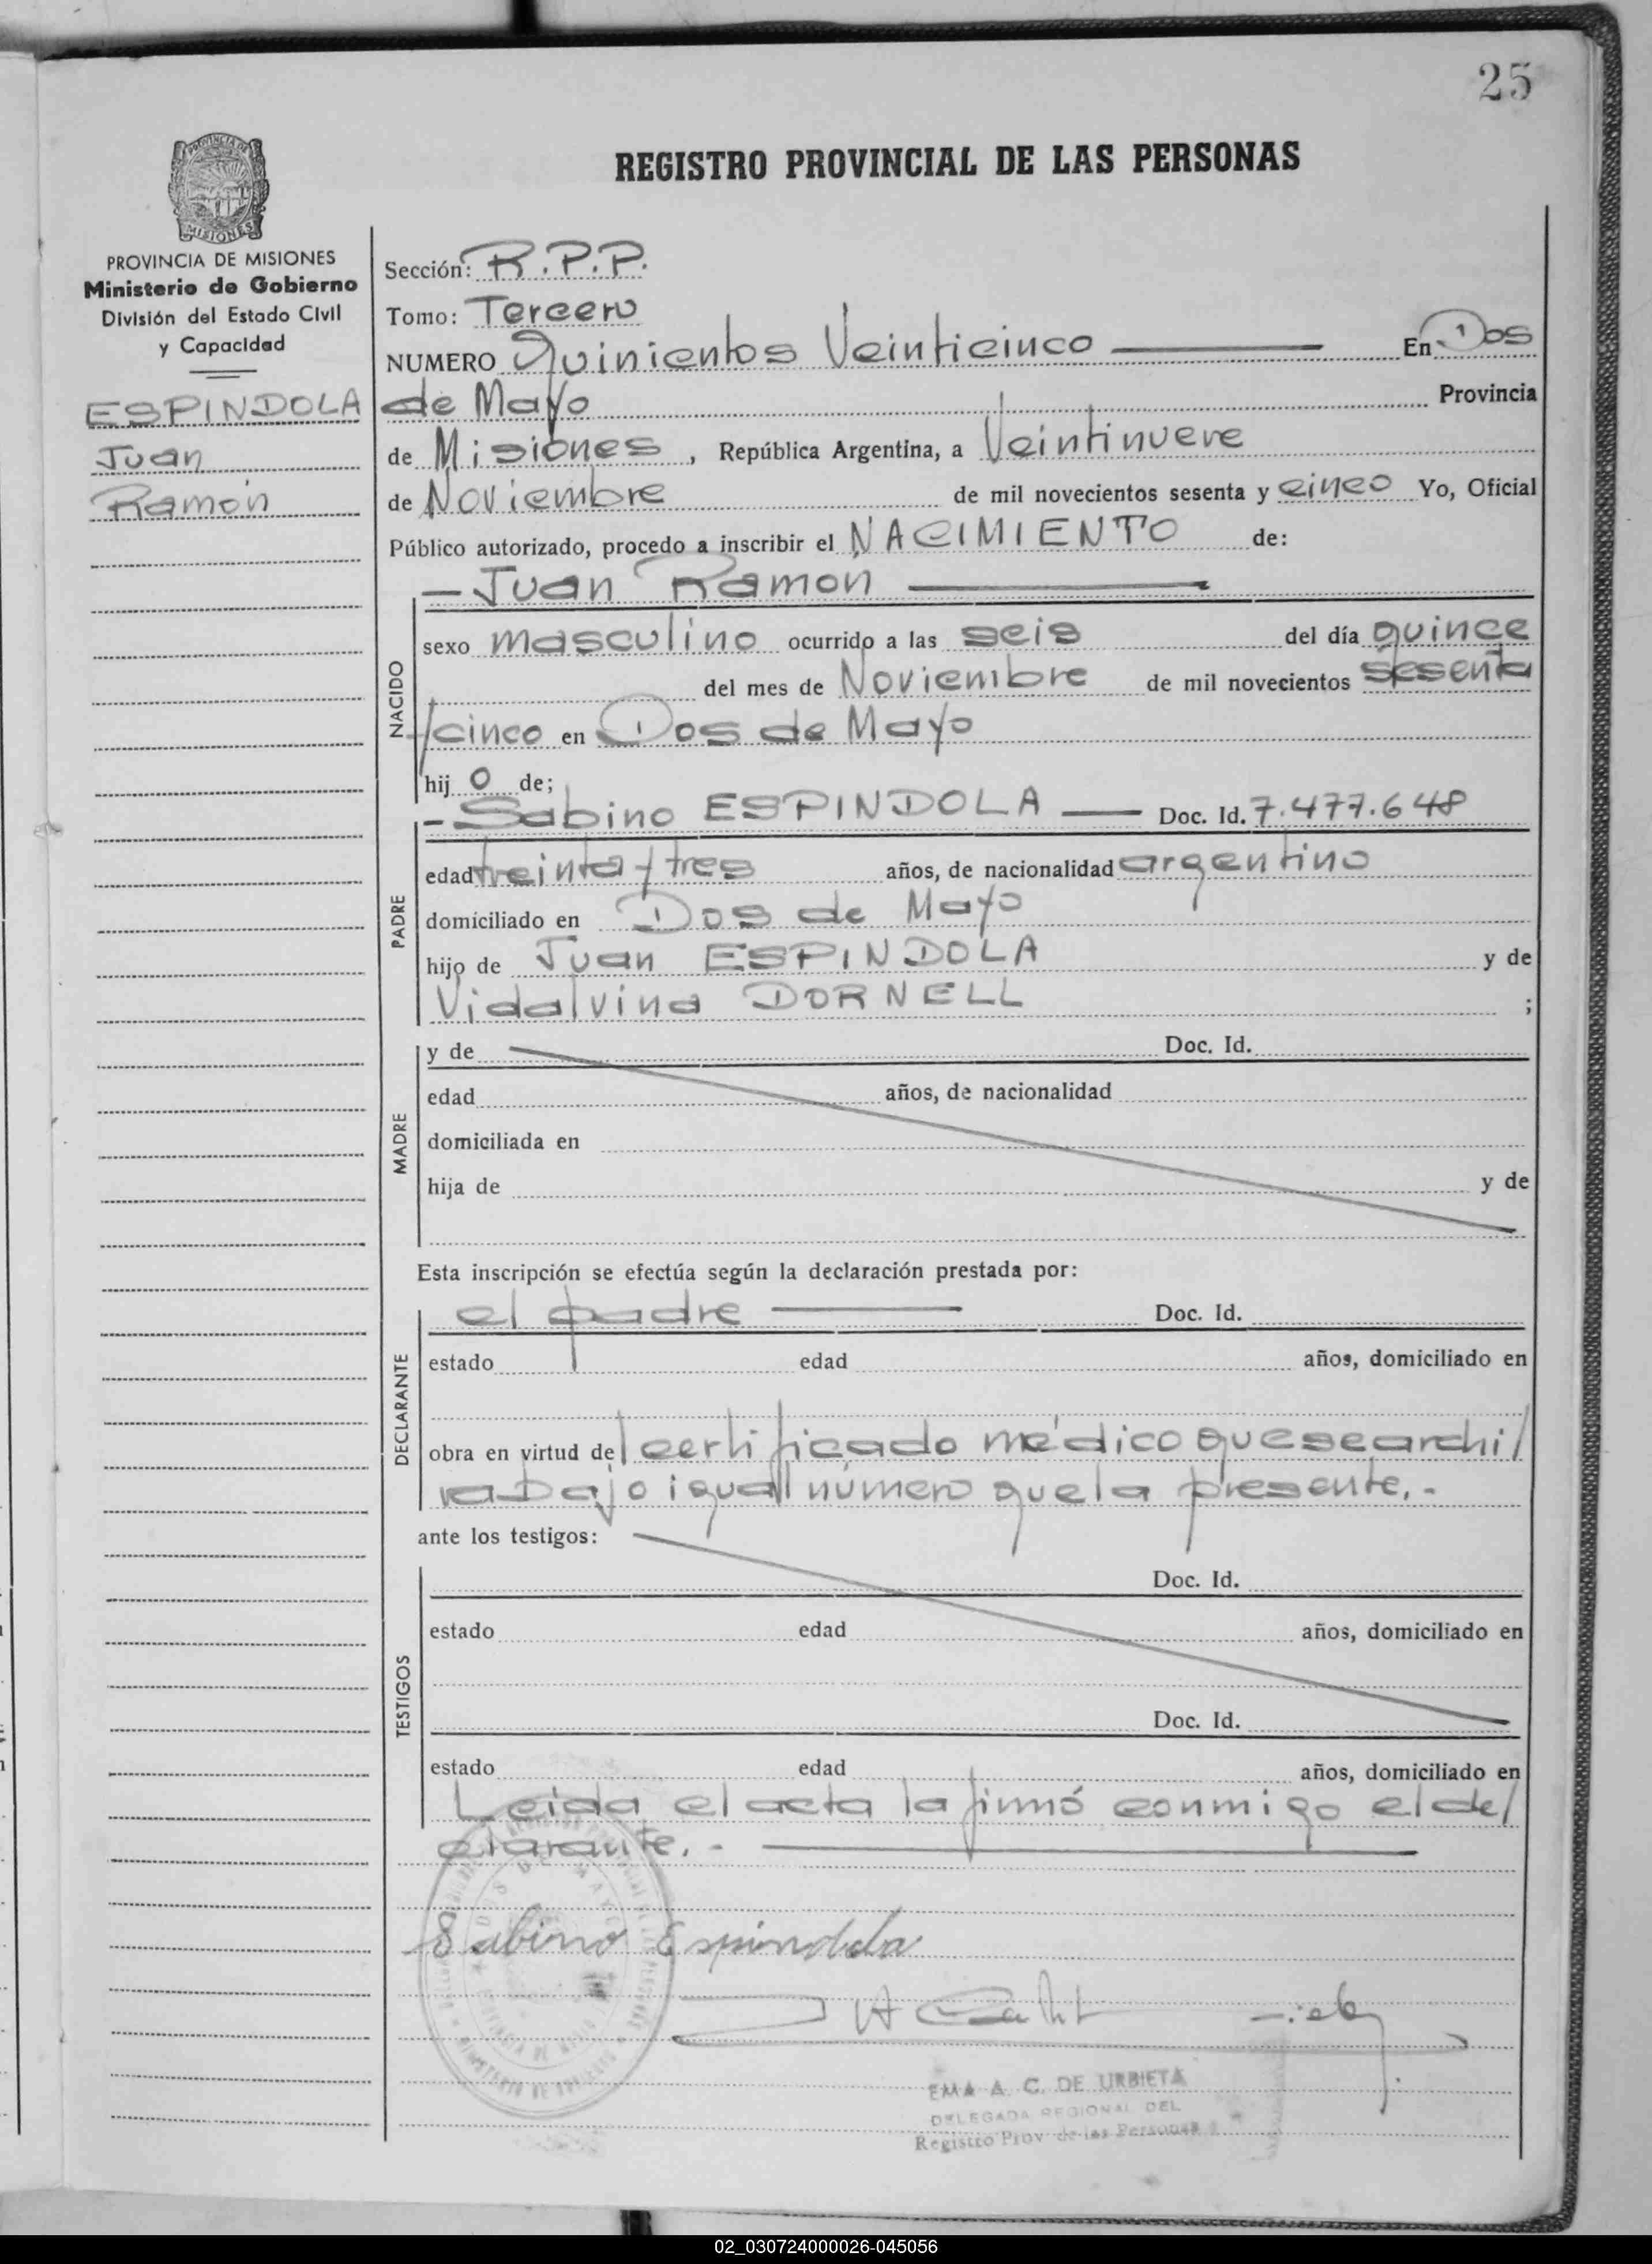 25
REGISTRO PROVINCIAL DE LAS PERSONAS
PROVINCIA DE
MISIONES
PROVINCIA DE MISIONES
Ministerio de Gobierno
División del Estado Civil
y Capacidad
ESPINDOLA
Juan
Ramón
Sección: R.P.P.
Tomo: Tercero
NUMERO Quinientos Veinticinco En Dos
de Mayo Provincia
de Misiones, República Argentina, a Veintinueve
de Noviembre de mil novecientos sesenta y cinco Yo, Oficial
Público autorizado, procedo a inscribir el NACIMIENTO de:
— Juan Ramón —
NACIDO
sexo masculino ocurrido a las seis del día quince
del mes de Noviembre de mil novecientos sesenta
y cinco en Dos de Mayo
hij o de;
- Sabino ESPINDOLA — Doc. Id. 7.477.648
PADRE
edad treinta y tres años, de nacionalidad argentino
domiciliado en Dos de Mayo
hijo de Juan ESPINDOLA y de
Vidalvina DORNELL ;
MADRE
y de Doc. Id.
edad años, de nacionalidad
domiciliada en
hija de y de
Esta inscripción se efectúa según la declaración prestada por:
el padre — Doc. Id.
DECLARANTE
estado edad años, domiciliado en
obra en virtud del certificado médico que se archi/
va bajo igual número que la presente.-
ante los testigos:
TESTIGOS
Doc. Id.
estado edad años, domiciliado en
Doc. Id.
estado edad años, domiciliado en
Leida el acta la firmó conmigo el de/
clarante.-
Sabino Espindola
DOS DE MAYO
EMA A. C. DE URBIETA
DELEGADA REGIONAL DEL
Registro Prov. de las Personas
02_030724000026-045056